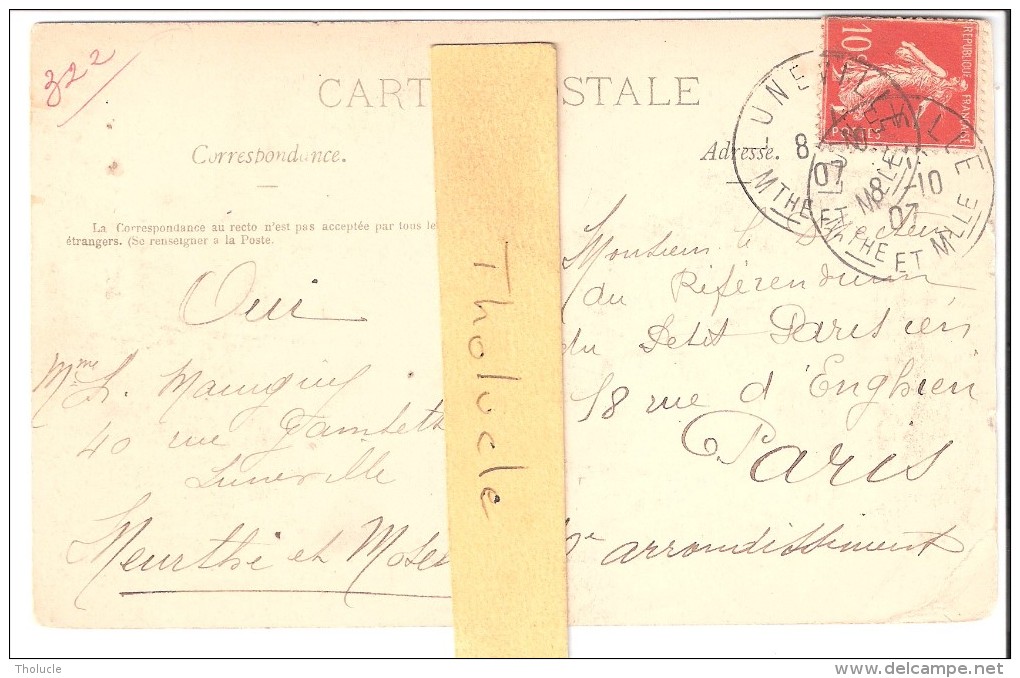 322
CART OSTALE
Correspondance.
La Correspondance au recto n'est pas acceptée par tous le
étrangers. (Se renseigner a la Poste.
Oui
Mme
40 rue Gambett
Luneville
Meurthe et Mosel
Tholucle
Adresse.
REPUBLIQUE FRANÇAISE
10c
POSTES
LUNEVILLE
8 -10
07
MTHE ET MLLE
LUNEVILLE
8 -10
07
MTHE ET MLLE
Monsieur le Directeur
du Référendum
du Petit Parisien
18 rue d'Enghien
Paris
arrondissement
Tholucle
delcampe.net